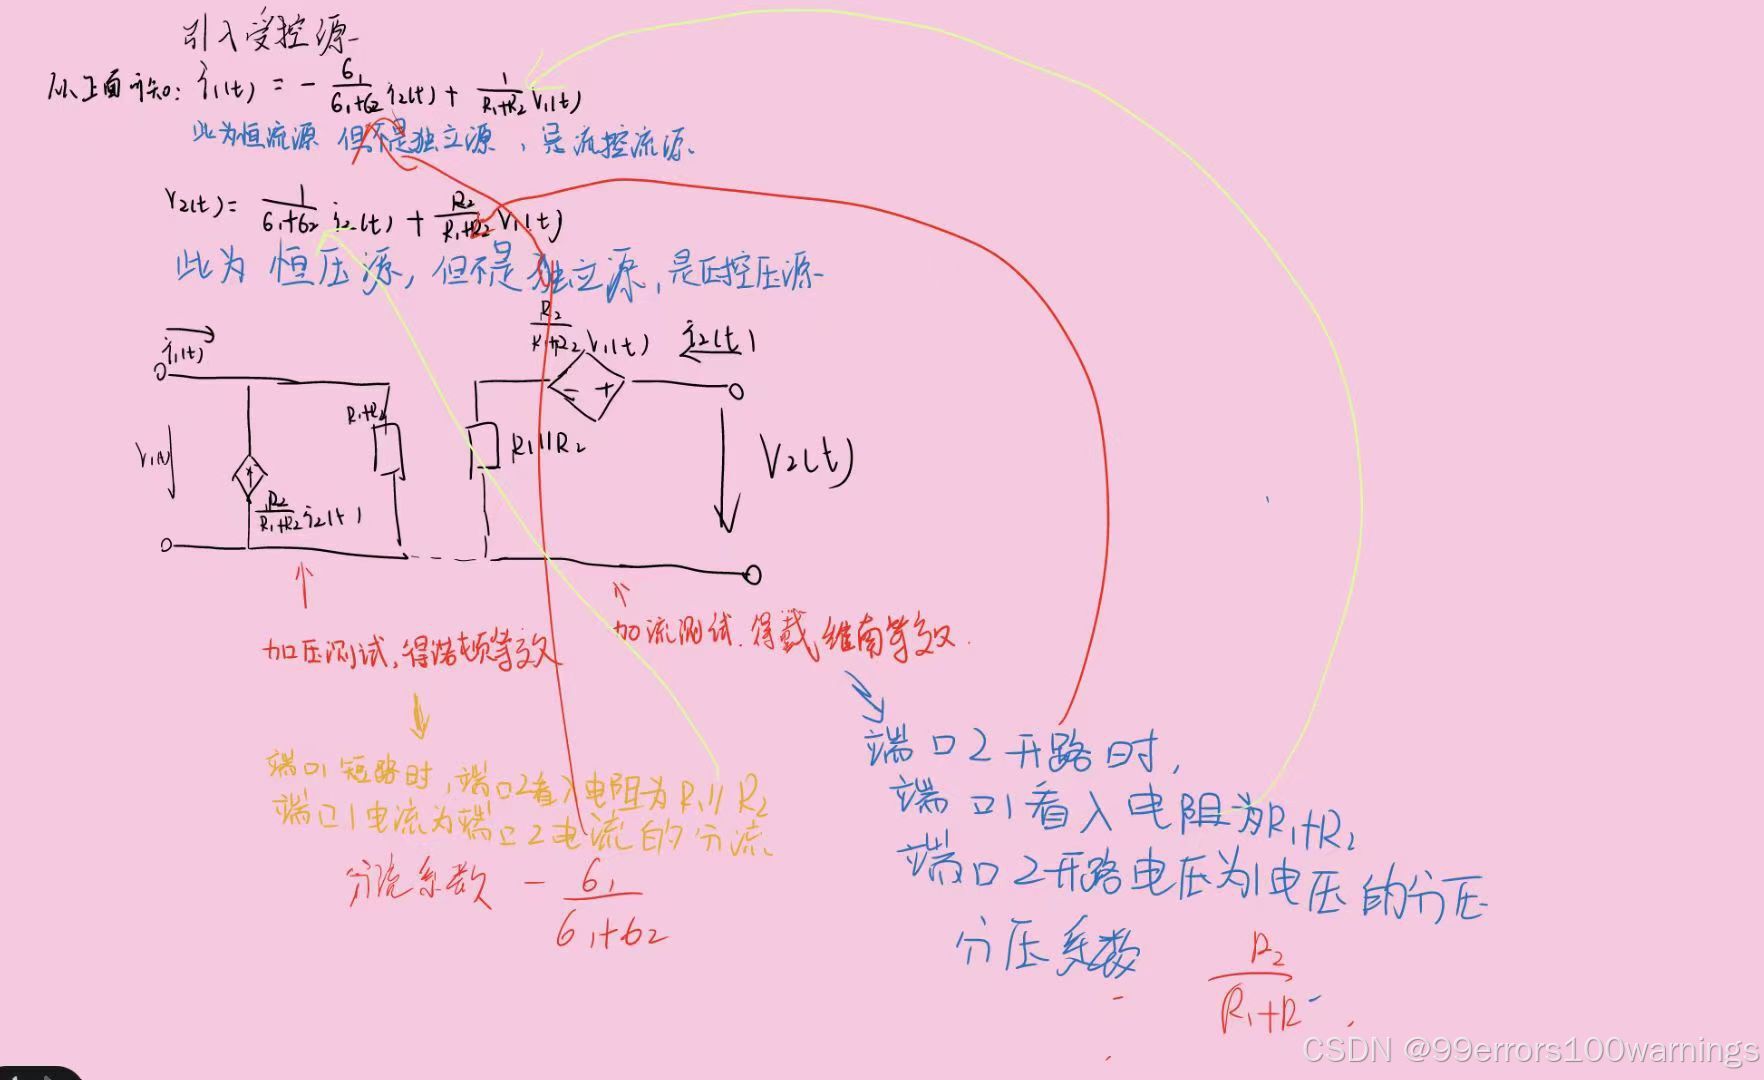 引入受控源
从上面可知: i₁(t) = - G₁/(G₁+G₂) i₂(t) + 1/(R₁+R₂) V₁(t)
此为恒流源 但不是独立源，是流控流源
V₂(t) = 1/(G₁+G₂) i₂(t) + R₂/(R₁+R₂) V₁(t)
此为 恒压源，但不是独立源，是压控压源
R₂/(R₁+R₂) V₁(t)
i₂(t)
i₁(t)
R₁+R₂
V₁(t)
R₁||R₂
V₂(t)
- +
R₂/(R₁+R₂) i₂(t)
加压测试，得诺顿等效
加流测试. 得戴维南等效.
端口1 短路时，端口2看入电阻为R₁||R₂
端口1电流为端口2电流的分流
分流系数 - G₁/(G₁+G₂)
端口2开路时，
端口1看入电阻为R₁+R₂
端口2开路电压为1电压的分压
分压系数 R₂/(R₁+R
CSDN @99errors100warnings